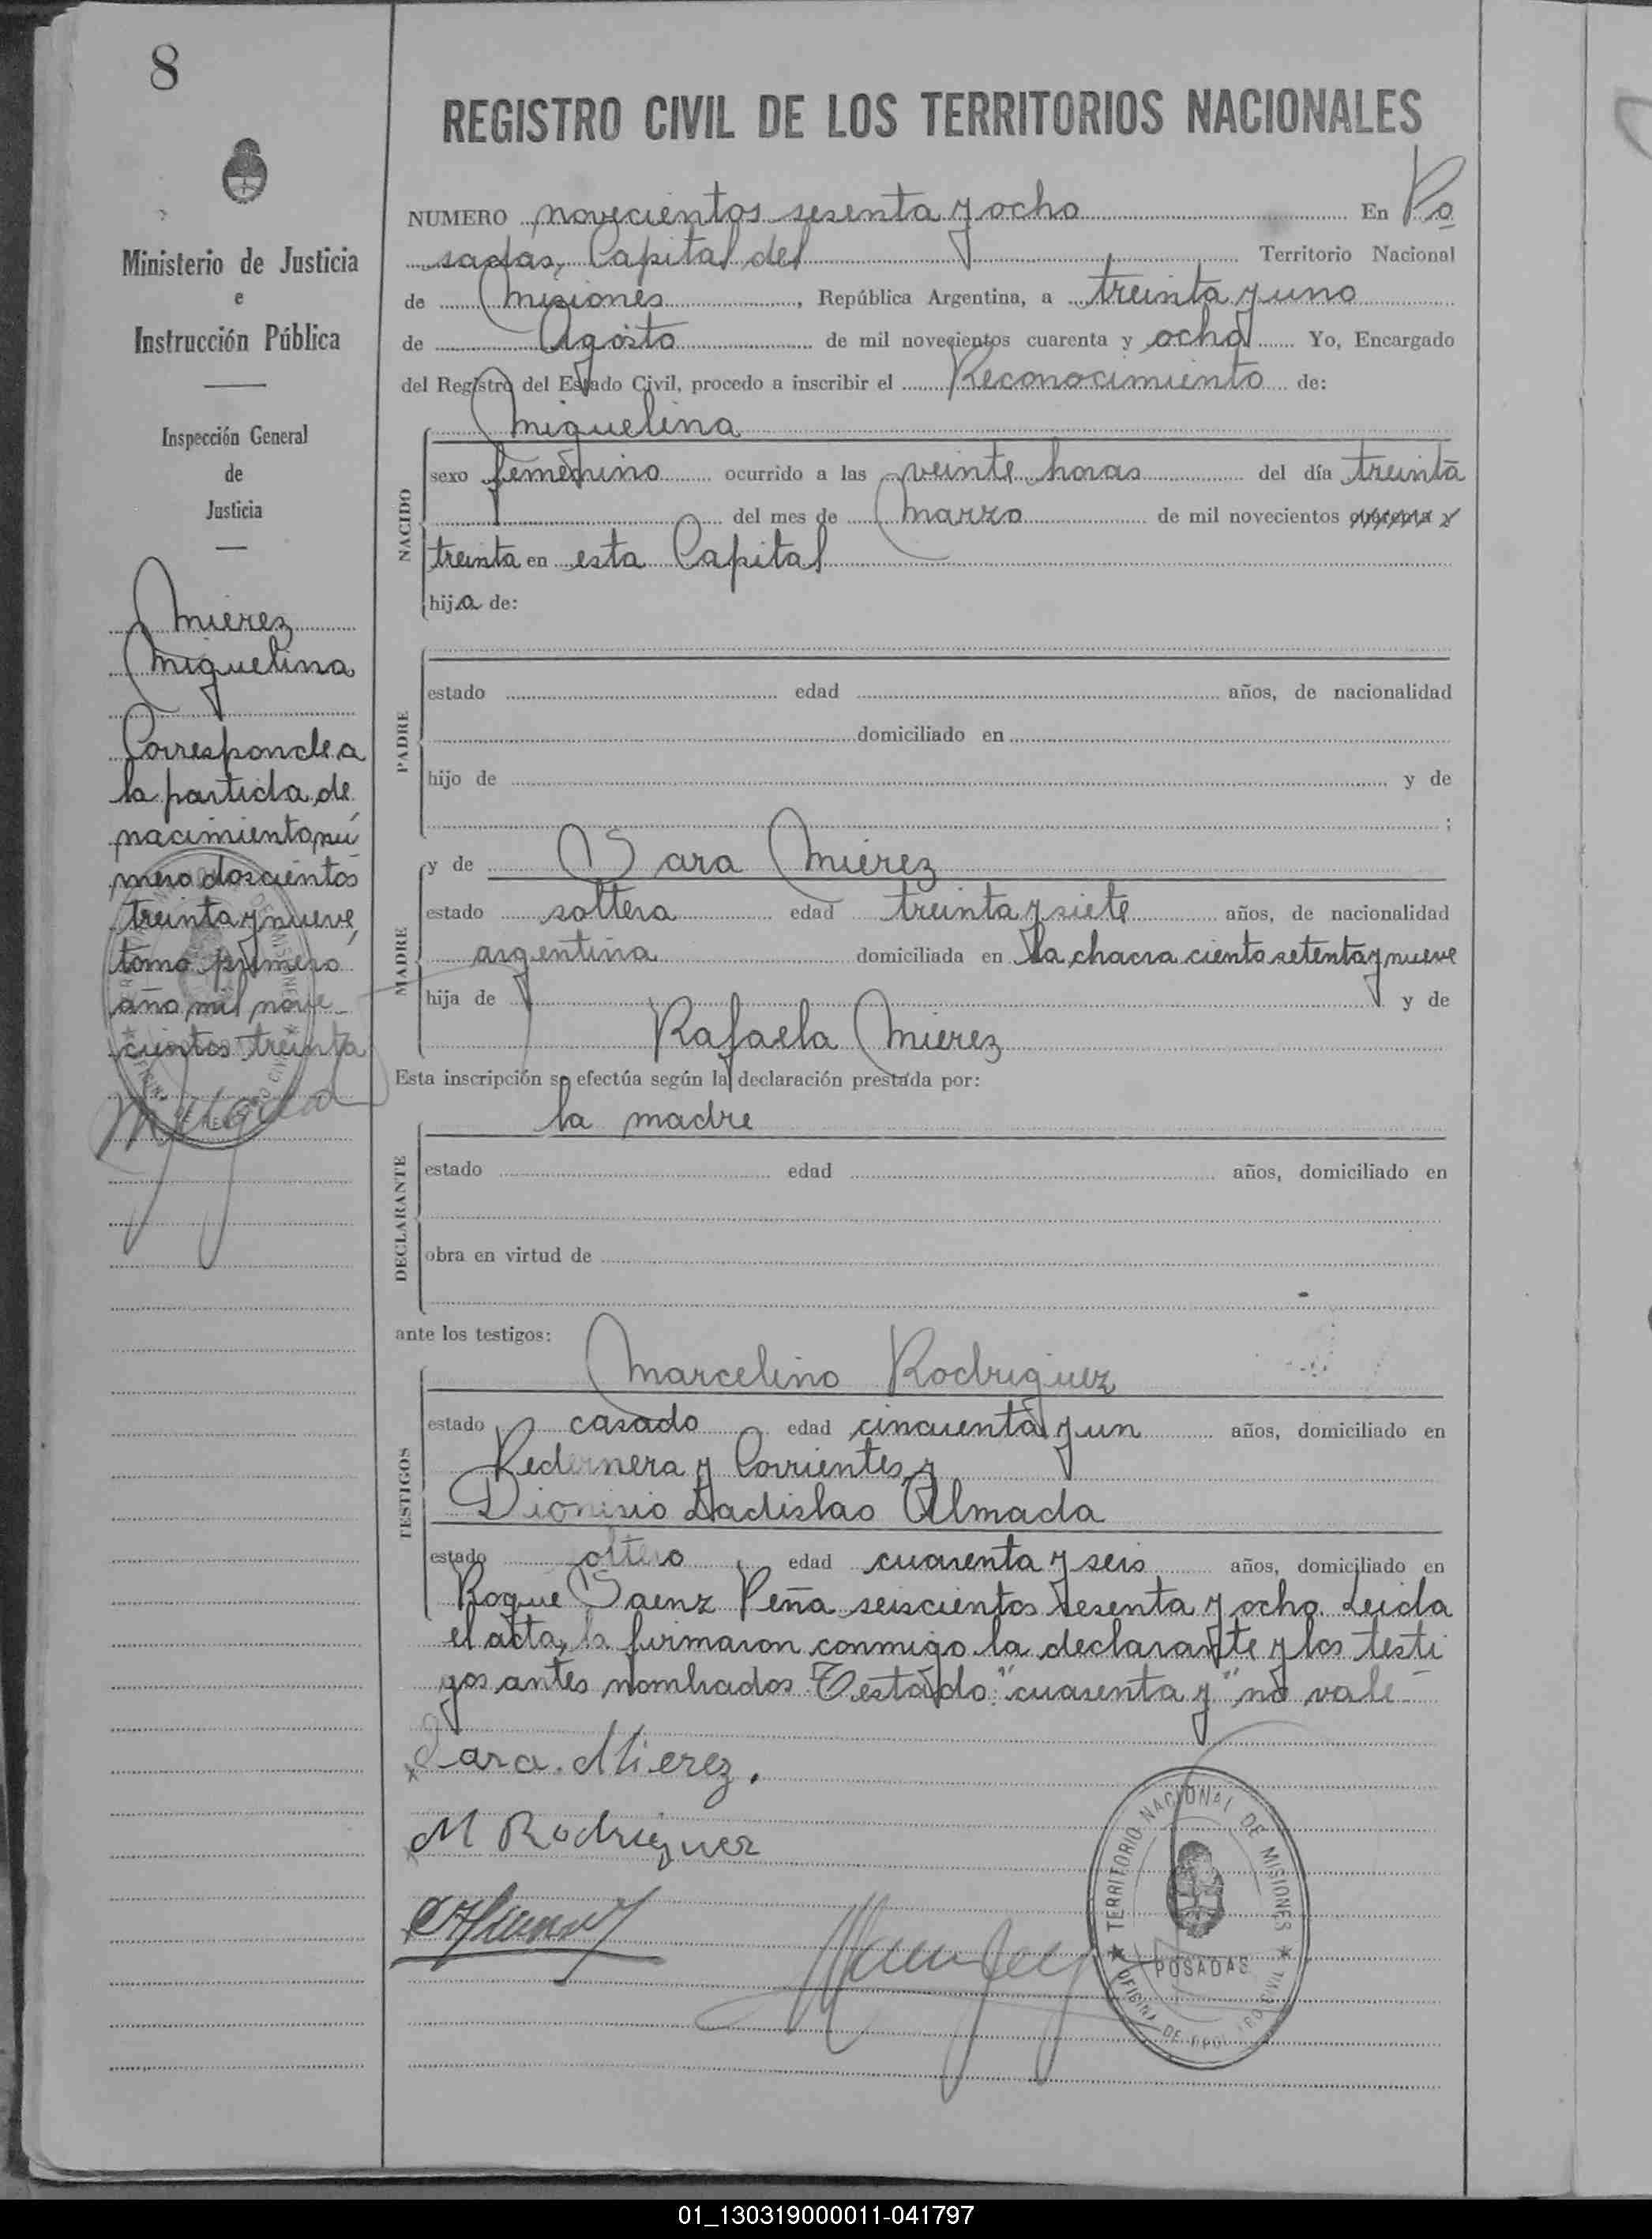 8
REGISTRO CIVIL DE LOS TERRITORIOS NACIONALES
Ministerio de Justicia
e
Instrucción Pública
Inspección General
de
Justicia
Mierez
Miquelina
Corresponde a
la partida de
nacimiento nú
mero doscientos
treinta y nueve,
tomo primero
año mil nove-
cientos treinta
NUMERO novecientos sesenta y ocho En Po
sadas, Capital del Territorio Nacional
de Misiones, República Argentina, a treinta y uno
de Agosto de mil novecientos cuarenta y ocho Yo, Encargado
del Registro del Estado Civil, procedo a inscribir el Reconocimiento de:
NACIDO
Miquelina
sexo femenino ocurrido a las veinte horas del día treinta
del mes de Marzo de mil novecientos cuarenta y
treinta en esta Capital
hija de:
PADRE
estado edad años, de nacionalidad
domiciliado en
hijo de y de
;
MADRE
y de Sara Mierez
estado soltera edad treinta y siete años, de nacionalidad
argentina domiciliada en la chacra ciento setenta y nueve
hija de y de
Rafaela Mierez
Esta inscripción se efectúa según la declaración prestada por:
DECLARANTE
la madre
estado edad años, domiciliado en
obra en virtud de
ante los testigos:
TESTIGOS
Marcelino Rodriguez
estado casado edad cincuenta y un años, domiciliado en
Pedernera y Corrientes y
Dionisio Ladislao Almada
estado soltero edad cuarenta y seis años, domiciliado en
Roque Saenz Peña seiscientos sesenta y ocho. Leida
el acta, la firmaron conmigo la declarante y los testi
gos antes nombrados. Testado: "cuarenta y" no vale-
Sara Mierez.
M Rodriguez
TERRITORIO NACIONAL DE MISIONES
POSADAS
OFICINA DE REGISTRO CIVIL
01_130319000011-041797